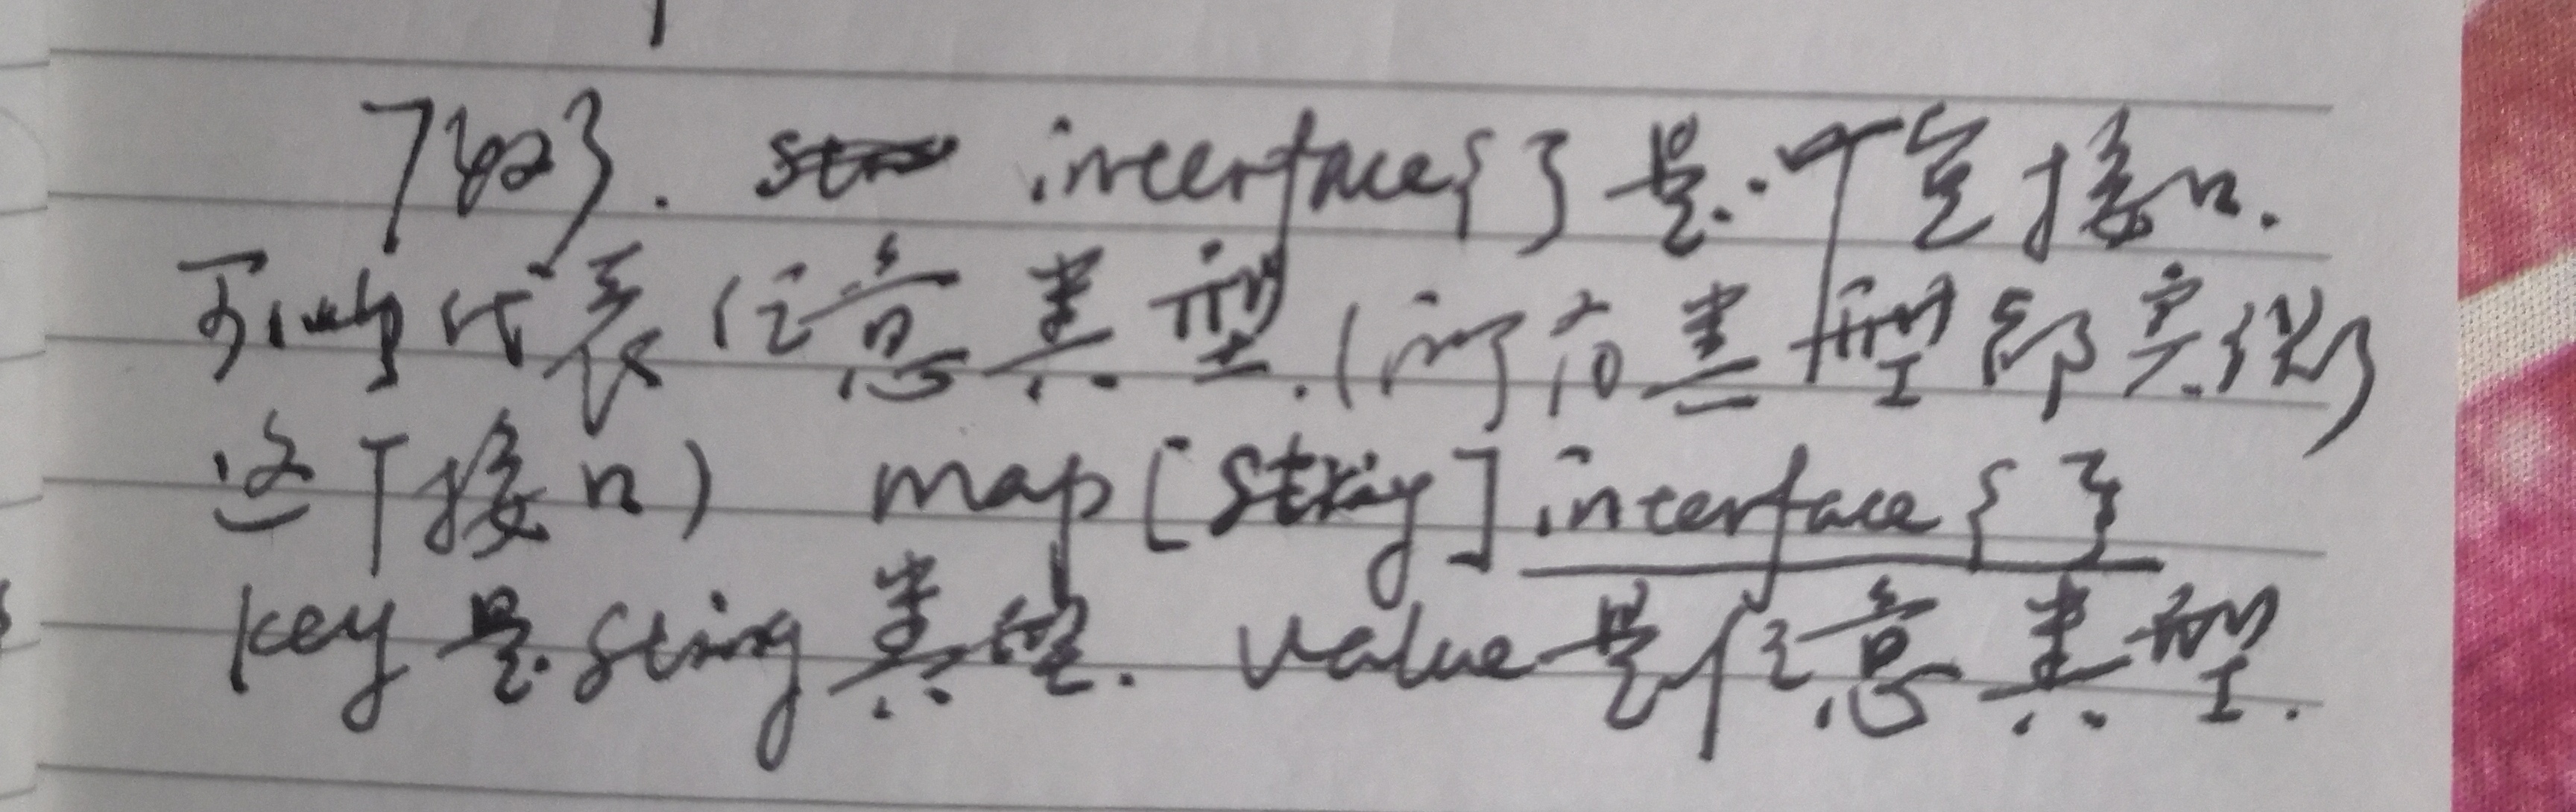 interface{}是一个空接口.
可以代表任意类型.(所有类型都实现了
这个接口) map[string]interface{}
key是string类型. value是任意类型.